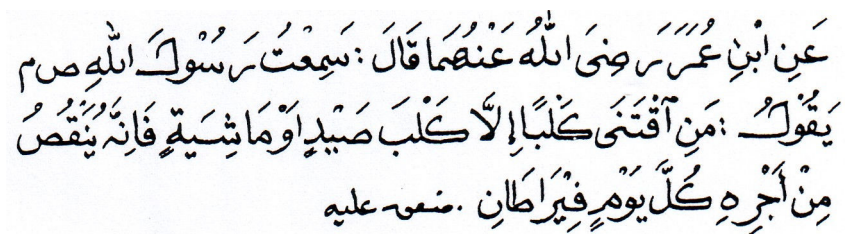 عَنِ ابْنِ عُمَرَ رَضِىَ اللهُ عَنْهُمَا قَالَ : سَمِعْتُ رَسُوْلَ اللهِ ص م
يَقُوْلُ : مَنِ اقْتَنَى كَلْبًا إِلَّا كَلْبَ صَيْدٍ اَوْ مَاشِيَةٍ فَاِنَّهُ يُنْقَصُ
مِنْ أَجْرِهِ كُلَّ يَوْمٍ قِيْرَاطَانِ . متفق عليه